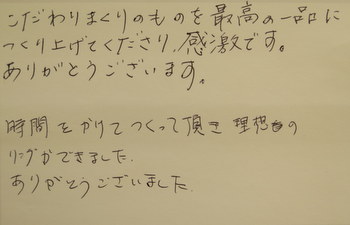 こだわりまくりのものを最高の一品に
つくり上げてくださり、感激です。
ありがとうございます。
時間をかけてつくって頂き理想の
リングができました。
ありがとうございました。